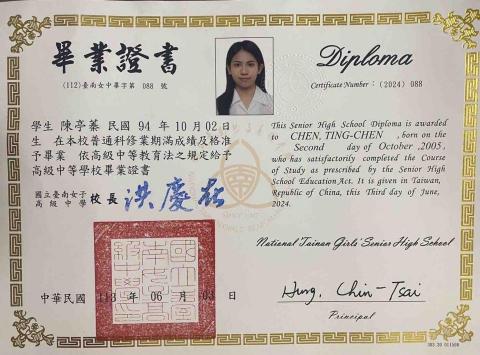 畢業證書
(112)臺南女中畢字第 088 號
學生 陳亭蓁 民國 94 年 10 月 02 日
生 在本校普通科修業期滿成績及格准
予畢業 依高級中等教育法之規定給予
高級中等學校畢業證書
國立臺南女子
高級中學 校長 洪慶在
中華民國 113 年 06 月 03 日
Diploma
Certificate Number : (2024) 088
This Senior High School Diploma is awarded
to CHEN, TING-CHEN , born on the
Second day of October ,2005,
who has satisfactorily completed the Course
of Study as prescribed by the Senior High
School Education Act. It is given in Taiwan,
Republic of China, this Third day of June,
2024.
National Tainan Girls' Senior High School
Hung, Chin-Tsai
Principal